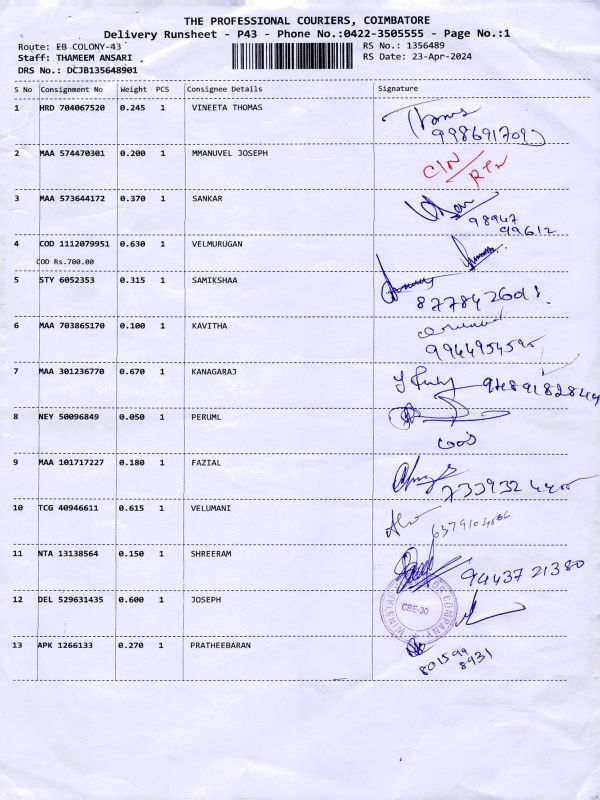 THE PROFESSIONAL COURIERS, COIMBATORE
Delivery Runsheet - P43 - Phone No.:0422-3505555 - Page No.:1
Route: EB COLONY-43
RS No.: 1356489
Staff: THAMEEM ANSARI
RS Date: 23-Apr-2024
DRS No.: DCJB135648901
S No Consignment No Weight PCS Consignee Details Signature
1 HRD 704067520 0.245 1 VINEETA THOMAS
2 MAA 574470301 0.200 1 MMANUVEL JOSEPH
3 MAA 573644172 0.370 1 SANKAR
98947
99612
4 COD 1112079951 0.630 1 VELMURUGAN
COD Rs.700.00
5 STY 6052353 0.315 1 SAMIKSHAA
6 MAA 703865170 0.100 1 KAVITHA
7 MAA 301236770 0.670 1 KANAGARAJ
8 NEY 50096849 0.050 1 PERUML
9 MAA 101717227 0.180 1 FAZIAL
10 TCG 40946611 0.615 1 VELUMANI
11 NTA 13138564 0.150 1 SHREERAM
94437 21380
12 DEL 529631435 0.600 1 JOSEPH
CBE-30
13 APK 1266133 0.270 1 PRATHEEBARAN
801599
8931